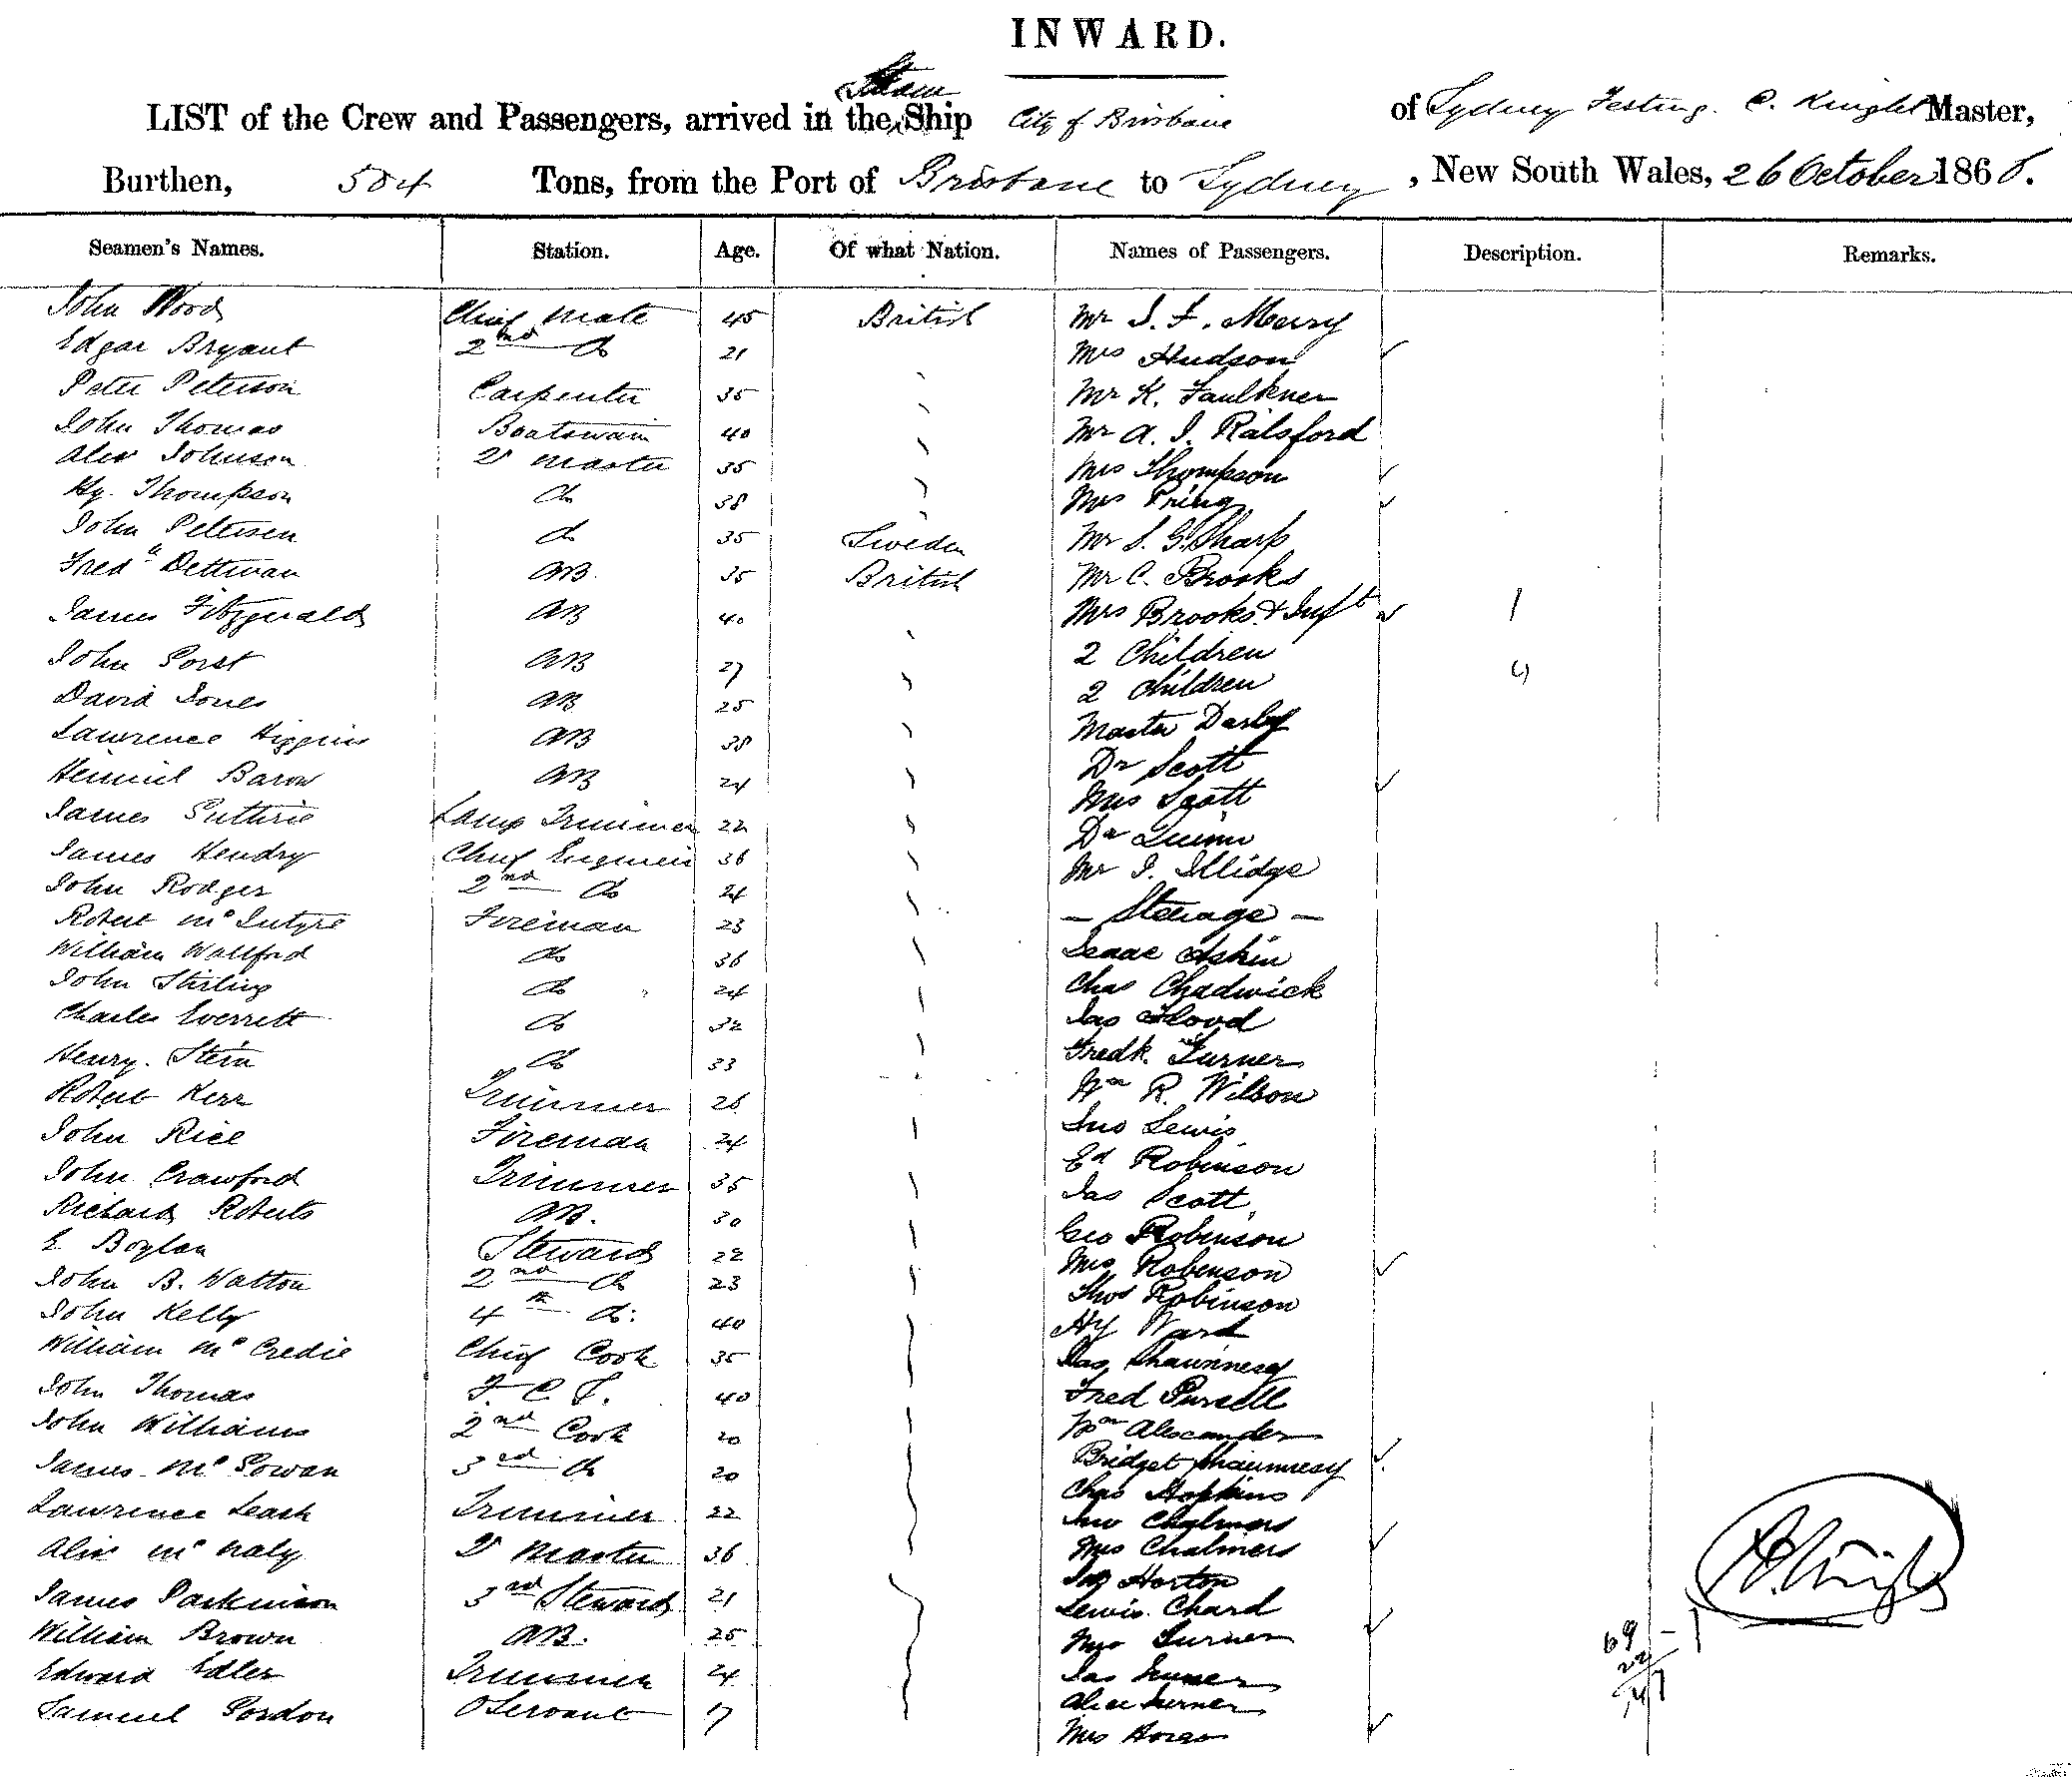 INWARD.
LIST of the Crew and Passengers, arrived in the Steam Ship City of Brisbane of Sydney Testing. C. Knight Master,
Burthen, 504 Tons, from the Port of Brisbane to Sydney, New South Wales, 26 October 1868.
Seamen's Names. Station. Age. Of what Nation. Names of Passengers. Description. Remarks.
John Wood Chief Mate 45 British Mr S. F. Merry
Edgar Bryant 2nd do 21 Mrs Hudson
Peter Peterson Carpenter 35 Mr K. Faulkner
John Thomas Boatswain 40 Mr A. J. Ralsford
Alex Johnson 2r Master 35 Mrs Thompson
Hy. Thompson do 38 Mrs Pring
John Petersen do 35 Sweden Mr S. G. Sharp
Fredk Dettman AB. 35 British Mr C. Brooks
James Fitzgerald AB 40 Mrs Brooks & Inft 1
John Gorst AB 27 2 Children 4
David Jones AB 25 2 Children
Lawrence Higgins AB 38 Master Darby
Baron AB 24 Dr Scott
James Guthrie Lamp Trimmer 22 Mrs Scott
James Hendry Chief Engineer 36 Dr Quinn
John Rodger 2nd do 24 Mr J. Illidge
Robert McIntyre Fireman 23 — Steerage —
William Wallford do 36 Isaac Askin
John Stirling do 24 Chas Chadwick
Charles Everrett do 32 Jas Flood
Henry. Stein do 33 Fredk. Turner
Robert Kerr Trimmer 26 Wm R. Wilson
John Rice Fireman 24 Jno Lewis
John Crawford Trimmer 35 Ed Robinson
Richard Roberts AB. 30 Jas Scott
E. Boylan Steward 22 Geo Robinson
John B. Watton 2nd do 23 Mrs Robinson
John Kelly 4th do. 40 Thos Robinson
William McCredie Chief Cook 35 Hy Ward
John Thomas F. C. S. 40 Jas Shaunnesy
John Williams 2nd Cook 20 Fred Pursell
James McGowan 3rd do 20 Wm Alexander
Lawrence Leach Trimmer 22 Bridget Shaunnesy
Alex McNaly 2r Master 36 Chas Hopkins
James Parkinson 3rd Steward 21 Jno Chalmers
William Brown AB. 25 Mrs Chalmers
Edward Edler Trimmer 24 Jas Horton
Samuel Gordon OServant 17 Lewis Chard
Mrs Turner
Jas Turner
Alice Turner
Mrs
C. Knight
69 - 1
22